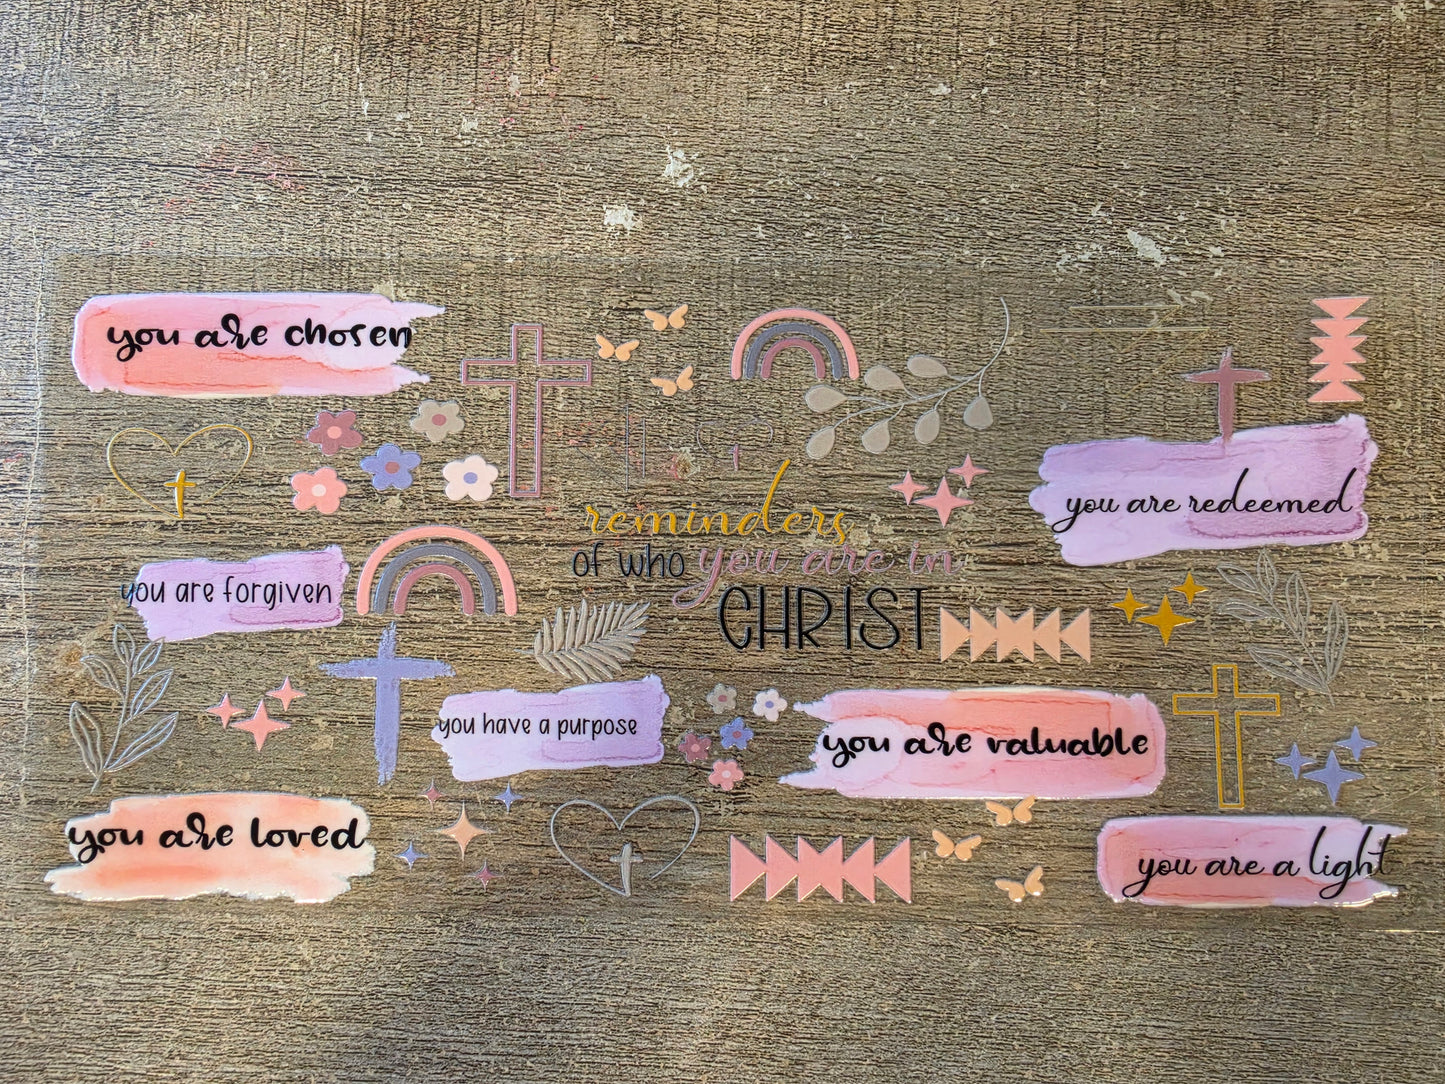 you are chosen
you are redeemed
reminders
of who you are in
CHRIST
you are forgiven
you have a purpose
you are valuable
you are loved
you are a light